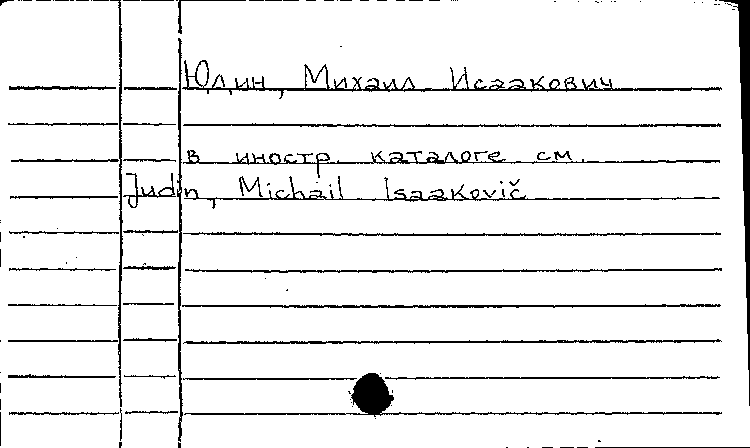 Юдин, Михаил Исаакович
в иностр. каталоге см.
Judin, Michail Isaakovič